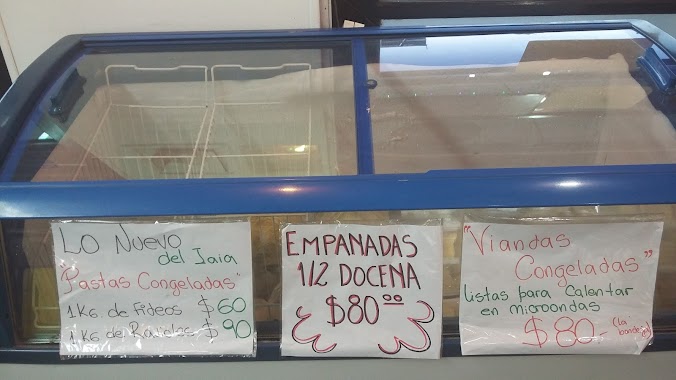 Lo Nuevo
del Iaia
"Pastas Congeladas"
1Kg. de Fideos $60
1Kg. de Ravioles $90
EMPANADAS
1/2 DOCENA
$80.00
"Viandas
Congeladas"
listas para Calentar
en microondas
$80.- (la
bandeja)